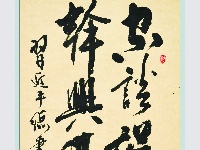 空談誤
幹興
習近平